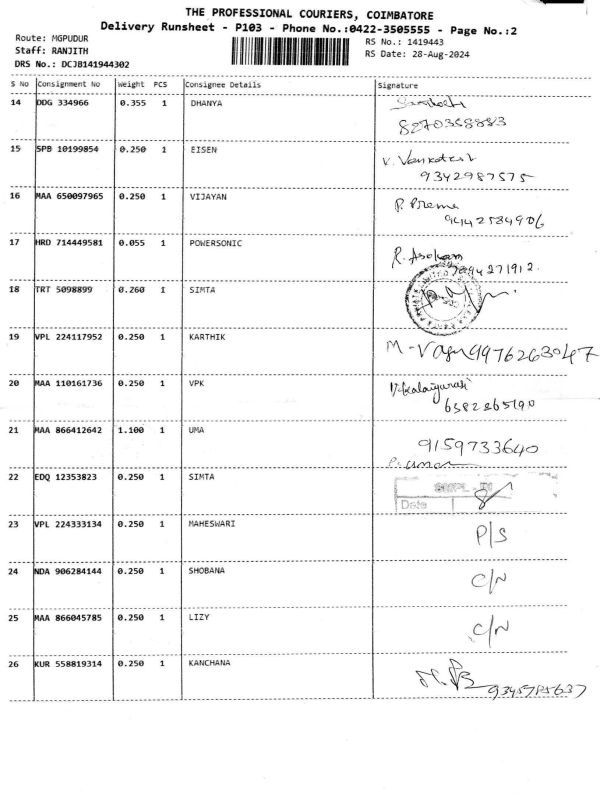 THE PROFESSIONAL COURIERS, COIMBATORE
Delivery Runsheet - P103 - Phone No.:0422-3505555 - Page No.:2
Route: MGPUDUR
RS No.: 1419443
Staff: RANJITH
RS Date: 28-Aug-2024
DRS No.: DCJB141944302
S No Consignment No Weight PCS Consignee Details Signature
14 DDG 334966 0.355 1 DHANYA
8270358883
15 SPB 10199854 0.250 1 EISEN V. Venkatesh
9342987575
16 MAA 650097965 0.250 1 VIJAYAN P. Prema
9442584906
17 HRD 714449581 0.055 1 POWERSONIC R. Asokan
18 TRT 5098899 0.260 1 SIMTA
19 VPL 224117952 0.250 1 KARTHIK M-
9976263047
20 MAA 110161736 0.250 1 VPK
6382265190
21 MAA 866412642 1.100 1 UMA 9159733640
22 EDQ 12353823 0.250 1 SIMTA
Date
23 VPL 224333134 0.250 1 MAHESWARI P/S
24 NDA 906284144 0.250 1 SHOBANA C/N
25 MAA 866045785 0.250 1 LIZY C/N
26 KUR 558819314 0.250 1 KANCHANA
9345785637